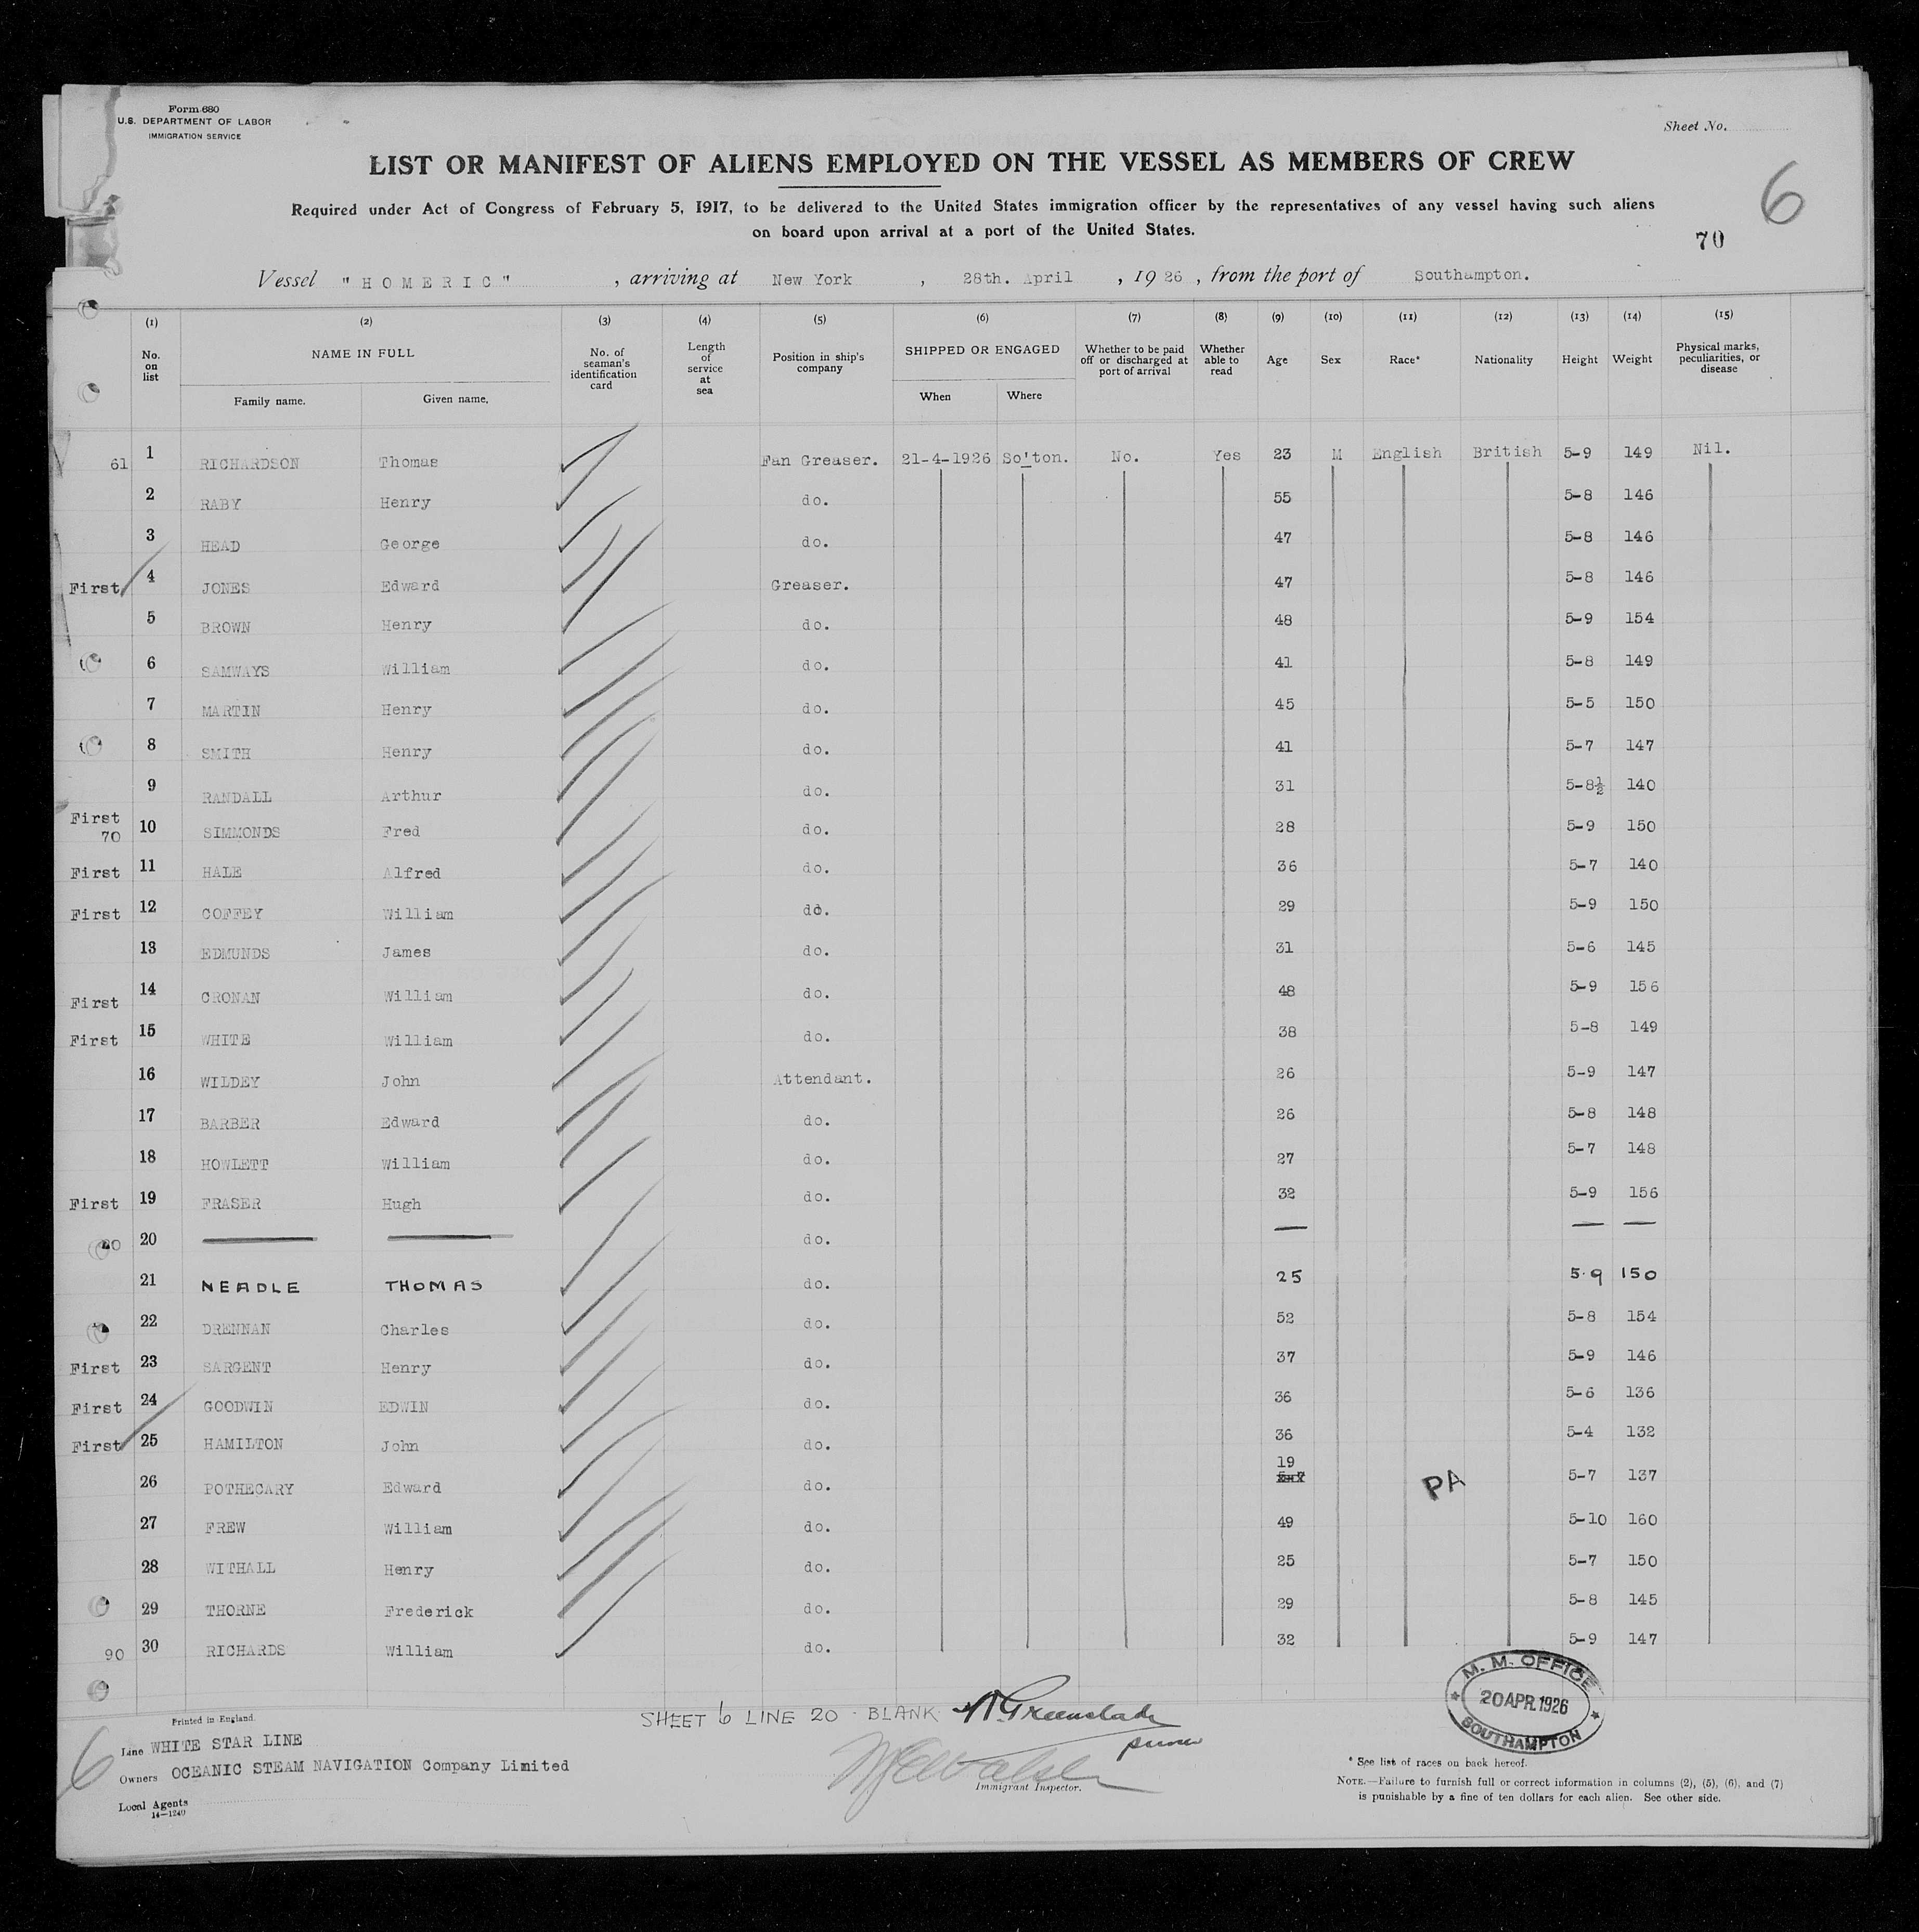 Form 680
U.S. DEPARTMENT OF LABOR
IMMIGRATION SERVICE
Sheet No.
LIST OR MANIFEST OF ALIENS EMPLOYED ON THE VESSEL AS MEMBERS OF CREW
6
Required under Act of Congress of February 5, 1917, to be delivered to the United States immigration officer by the representatives of any vessel having such aliens
on board upon arrival at a port of the United States.
70
Vessel "HOMERIC" , arriving at New York , 28th. April , 1926 , from the port of Southampton.
(1) (2) (3) (4) (5) (6) (7) (8) (9) (10) (11) (12) (13) (14) (15)
No. on list NAME IN FULL Family name. Given name. No. of seaman's identification card Length of service at sea Position in ship's company SHIPPED OR ENGAGED When Where Whether to be paid off or discharged at port of arrival Whether able to read Age Sex Race* Nationality Height Weight Physical marks, peculiarities, or disease
61 1 RICHARDSON Thomas Fan Greaser. 21-4-1926 So'ton. No. Yes 23 M English British 5-9 149 Nil.
2 RABY Henry do. 55 5-8 146
3 HEAD George do. 47 5-8 146
First 4 JONES Edward Greaser. 47 5-8 146
5 BROWN Henry do. 48 5-9 154
6 SAMWAYS William do. 41 5-8 149
7 MARTIN Henry do. 45 5-5 150
8 SMITH Henry do. 41 5-7 147
9 RANDALL Arthur do. 31 5-8½ 140
First 70 10 SIMMONDS Fred do. 28 5-9 150
First 11 HALE Alfred do. 36 5-7 140
First 12 COFFEY William do. 29 5-9 150
13 EDMUNDS James do. 31 5-6 145
First 14 CRONAN William do. 48 5-9 156
First 15 WHITE William do. 38 5-8 149
16 WILDEY John Attendant. 26 5-9 147
17 BARBER Edward do. 26 5-8 148
18 HOWLETT William do. 27 5-7 148
First 19 FRASER Hugh do. 32 5-9 156
80 20 — — do. — — —
21 NEADLE THOMAS do. 25 5.9 150
22 DRENNAN Charles do. 52 5-8 154
First 23 SARGENT Henry do. 37 5-9 146
First 24 GOODWIN EDWIN do. 36 5-6 136
First 25 HAMILTON John do. 36 5-4 132
26 POTHECARY Edward do. 19 PA 5-7 137
27 FREW William do. 49 5-10 160
28 WITHALL Henry do. 25 5-7 150
29 THORNE Frederick do. 29 5-8 145
90 30 RICHARDS William do. 32 5-9 147
M. M. OFFICE
20 APR. 1926
SOUTHAMPTON
SHEET 6 LINE 20 - BLANK Greenslade
purser
Printed in England.
6
Line WHITE STAR LINE
Owners OCEANIC STEAM NAVIGATION Company Limited
Local Agents
14—1240
Immigrant Inspector.
* See list of races on back hereof.
NOTE.—Failure to furnish full or correct information in columns (2), (5), (6), and (7)
is punishable by a fine of ten dollars for each alien. See other side.